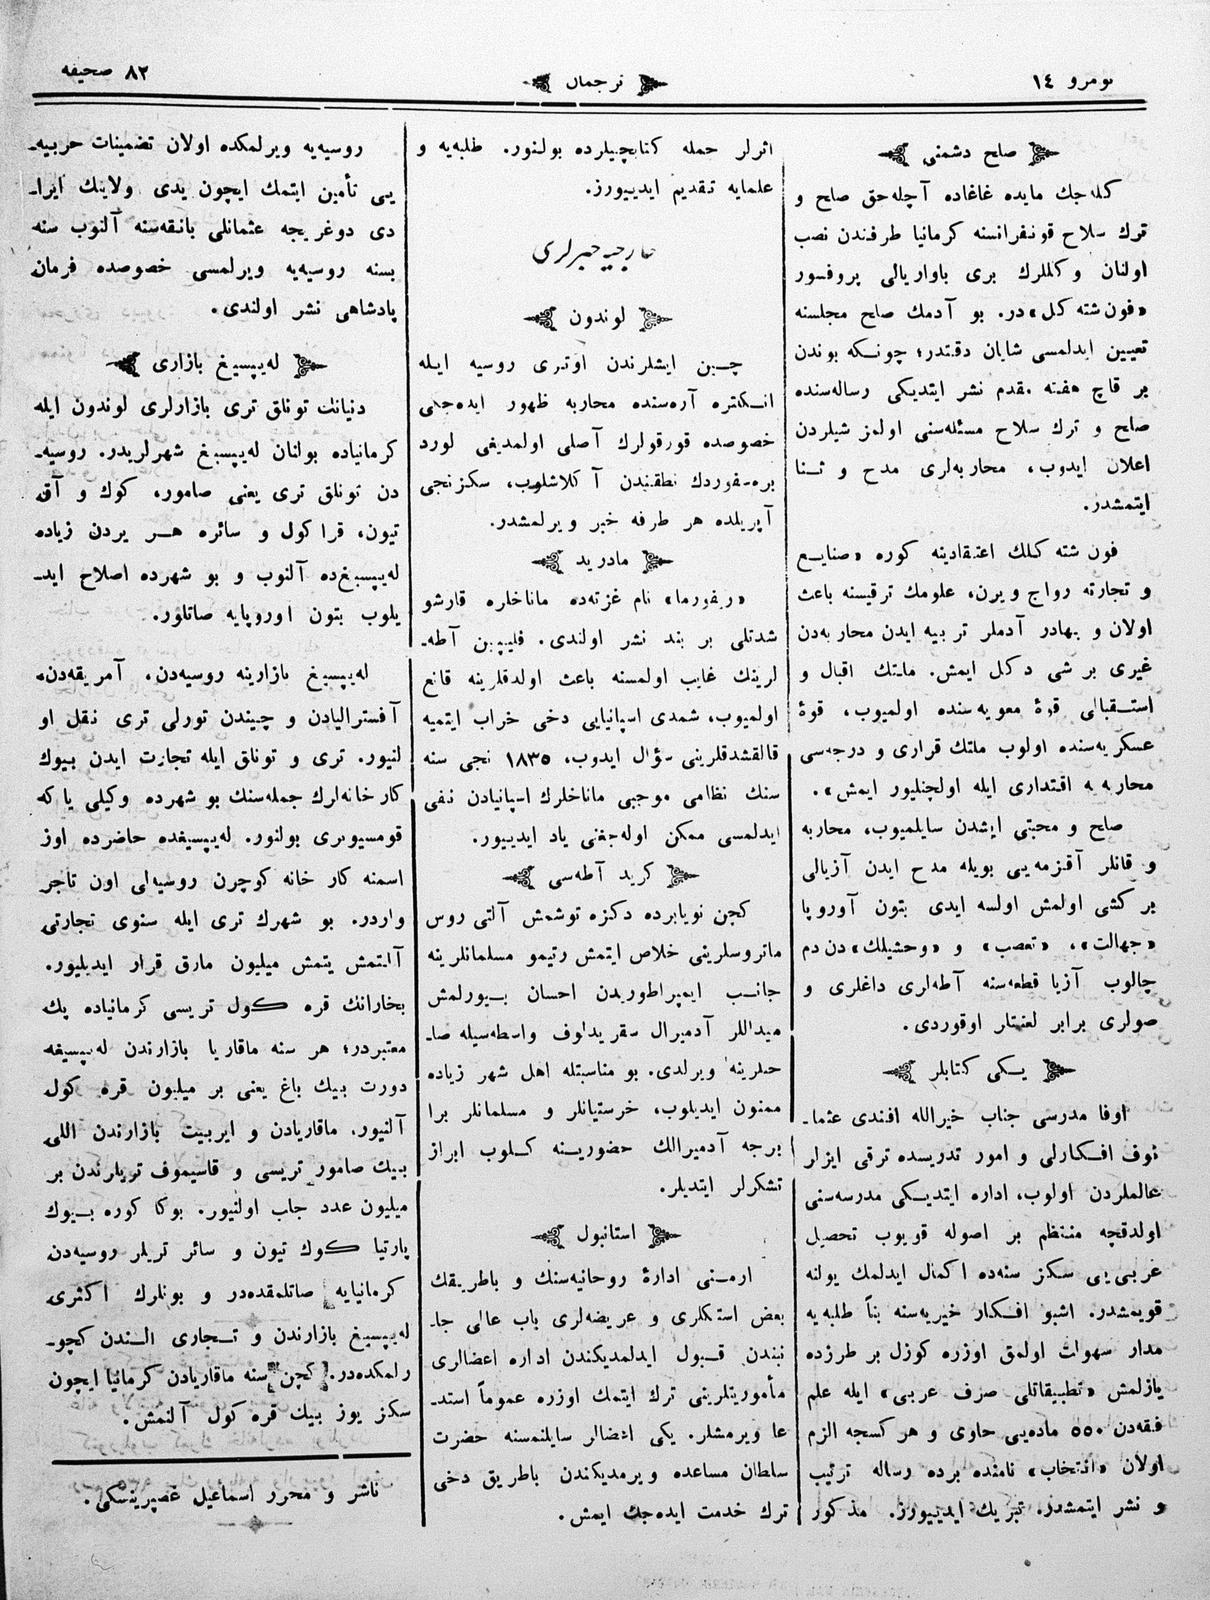 نومرو ١٤
ترجمان
٨٢ صحیفه
صلح دشمنی
كله‌جك مايده غاغاده آچله‌جق صلح و
ترك سلاح قونفرانسنه كرمانيا طرفندن نصب
اولنان وكللرك بری باواريالی پروفسور
«فون شته كل» در. بو آدمك صلح مجلسنه
تعيين ايدلمسی شايان دقتدر؛ چونكه بوندن
بر قاچ هفته مقدم نشر ايتديكی رساله‌سنده
صلح و ترك سلاح مسئله‌سنی اولمز شيلردن
اعلان ايدوب، محاربه‌لری مدح و ثنا
ايتمشدر.
فون شته كلك اعتقادينه كوره «صنايع
و تجارته رواج ويرن، علومك ترقيسنه باعث
اولان و بهادر آدملر تربيه ايدن محاربه‌دن
غيری بر شی دكل ايمش. ملتك اقبال و
استقبالی قوۀ معنويه‌سنده اولميوب، قوۀ
عسكريه‌سنده اولوب ملتك قراری و درجه‌سی
محاربه‌يه اقتداری ايله اولچنليور ايمش».
صلح و محبتی ايشدن سايلميوب، محاربه
و قانلر آقزمه‌يی بويله مدح ايدن آزيالی
بر كشی اولمش اولسه ايدی بتون آوروپا
«جهالت»، «تعصب» و «وحشيلك» دن دم
چالوب آزيا قطعه‌سنه آطه‌لری داغلری و
صولری برابر لعنتلر اوقوردی.
يكی كتابلر
اوفا مدرسی جناب خيرالله افندی عثما-
نوف افكارلی و امور تدريسده ترقی ايزلر
عالملردن اولوب، اداره ايتديكی مدرسه‌سنی
اولدقچه منتظم بر اصوله قويوب تحصيل
عربی‌يی سكز سنه‌ده اكمال ايدلمك يولنه
قويمشدر. اشبو افكار خيريه‌سنه بناً طلبه‌يه
مدار سهولت اولمق اوزره كوزل بر طرزده
يازلمش «تطبيقاتلی صرف عربی» ايله علم
فقه‌دن ٥٥٠ ماده‌يی حاوی و هر كسجه الزم
اولان «انتخاب» نامنده برده رساله ترتيب
و نشر ايتمشدر. تبريك ايدييورز. مذكور
اثرلر جمله كتابچيلرده بولنور. طلبه‌يه و
علمايه تقديم ايدييورز.
خارجيه خبرلری
لوندون
چين ايشلرندن اوتری روسيه ايله
انكلتره آره‌سنده محاربه ظهور ايده‌جكی
خصوصده قورقولرك آصلی اولمديغی لورد
بره‌سفوردك نطقندن آكلاشلوب، سكزنجی
آپريلده هر طرفه خبر ويرلمشدر.
مادريد
«ريفورما» نام غزته‌ده ماناخلره قارشو
شدتلی بر بند نشر اولندی. فليپين آطه-
لرينك غايب اولمسنه باعث اولدقلرينه قانع
اولميوب، شمدی اسپانيايی دخی خراب ايتميه
قالقشدقلرينی سؤال ايدوب، ١٨٣٥ نجی سنه
سنك نظامی موجبی ماناخلرك اسپانيادن نفی
ايدلمسی ممكن اوله‌جغنی ياد ايدييور.
كريد آطه‌سی
كچن نويابرده دكزه توشمش آلتی روس
ماتروسلرينی خلاص ايتمش رتيمو مسلمانلرينه
جانب ايمپراطوريدن احسان بيورلمش
ميداللر آدميرال سقريدلوف واسطه‌سيله صا-
حبلرينه ويرلدی. بو مناسبتله اهل شهر زياده
ممنون ايديلوب، خرستيانلر و مسلمانلر برا
برجه آدميرالك حضورينه كلوب ابراز
تشكرلر ايتديلر.
استانبول
ارمنی ادارۀ روحانيه‌سنك و باطريقك
بعض استكلری و عريضه‌لری باب عالی جا-
نبندن قبول ايدلمديكندن اداره اعضالری
مأموريتلرينی ترك ايتمك اوزره عموماً استد-
عا ويرمشلر. يكی اعضالر سايلنمسنه حضرت
سلطان مساعده ويرمديكندن باطريق دخی
ترك خدمت ايده‌جك ايمش.
روسيه‌يه ويرلمكده اولان تضمينات حربيه-
يی تأمين ايتمك ايچون يدی ولايتك ايرا-
دی دوغريجه عثمانلی بانقه‌سنه آلنوب سنه
بسنه روسيه‌يه ويرلمسی خصوصده فرمان
پادشاهی نشر اولندی.
له‌يپسيغ بازاری
دنيانك توناق تری بازارلری لوندون ايله
كرمانياده بولنان له‌يپسيغ شهرلريدر. روسيه-
دن توناق تری يعنی صامور، كوك و آق
تيون، قراكول و سائره هر يردن زياده
له‌يپسيغ‌ده آلنوب و بو شهرده اصلاح ايد-
يلوب بتون اوروپايه صاتلور.
له‌يپسيغ بازارينه روسيه‌دن، آمريقه‌دن،
آفستراليادن و چيندن تورلی تری نقل او
لنيور. تری و توناق ايله تجارت ايدن بيوك
كارخانه‌لرك جمله‌سنك بو شهرده وكيلی ياكه
قومسيونری بولنور. له‌يپسيغده حاضرده اوز
اسمنه كار خانه كوچرن روسيه‌لی اون تاجر
واردر. بو شهرك تری ايله سنوی تجارتی
آلتمش يتمش ميليون مارق قرار ايديليور.
بخارانك قره كول تريسی كرمانياده پك
معتبردر؛ هر سنه ماقاريا بازارندن له‌يپسيغه
دورت بيك باغ يعنی بر ميليون قره كول
آلنيور. ماقاريادن و ايربيت بازارندن اللی
بيك صامور تريسی و قاسيموف تريلرندن بر
ميليون عدد جلب اولنيور. بوكا كوره بيوك
پارتيا كوك تيون و سائر تريلر روسيه‌دن
كرمانيايه صاتلمقده‌در و بونلرك اكثری
له‌يپسيغ بازارندن و تجاری الندن كچو-
رلمكده‌در. كچن سنه ماقاريادن كرمانيا ايچون
سكز يوز بيك قره كول آلنمش.
ناشر و محرر اسماعيل غصپرينسكی.